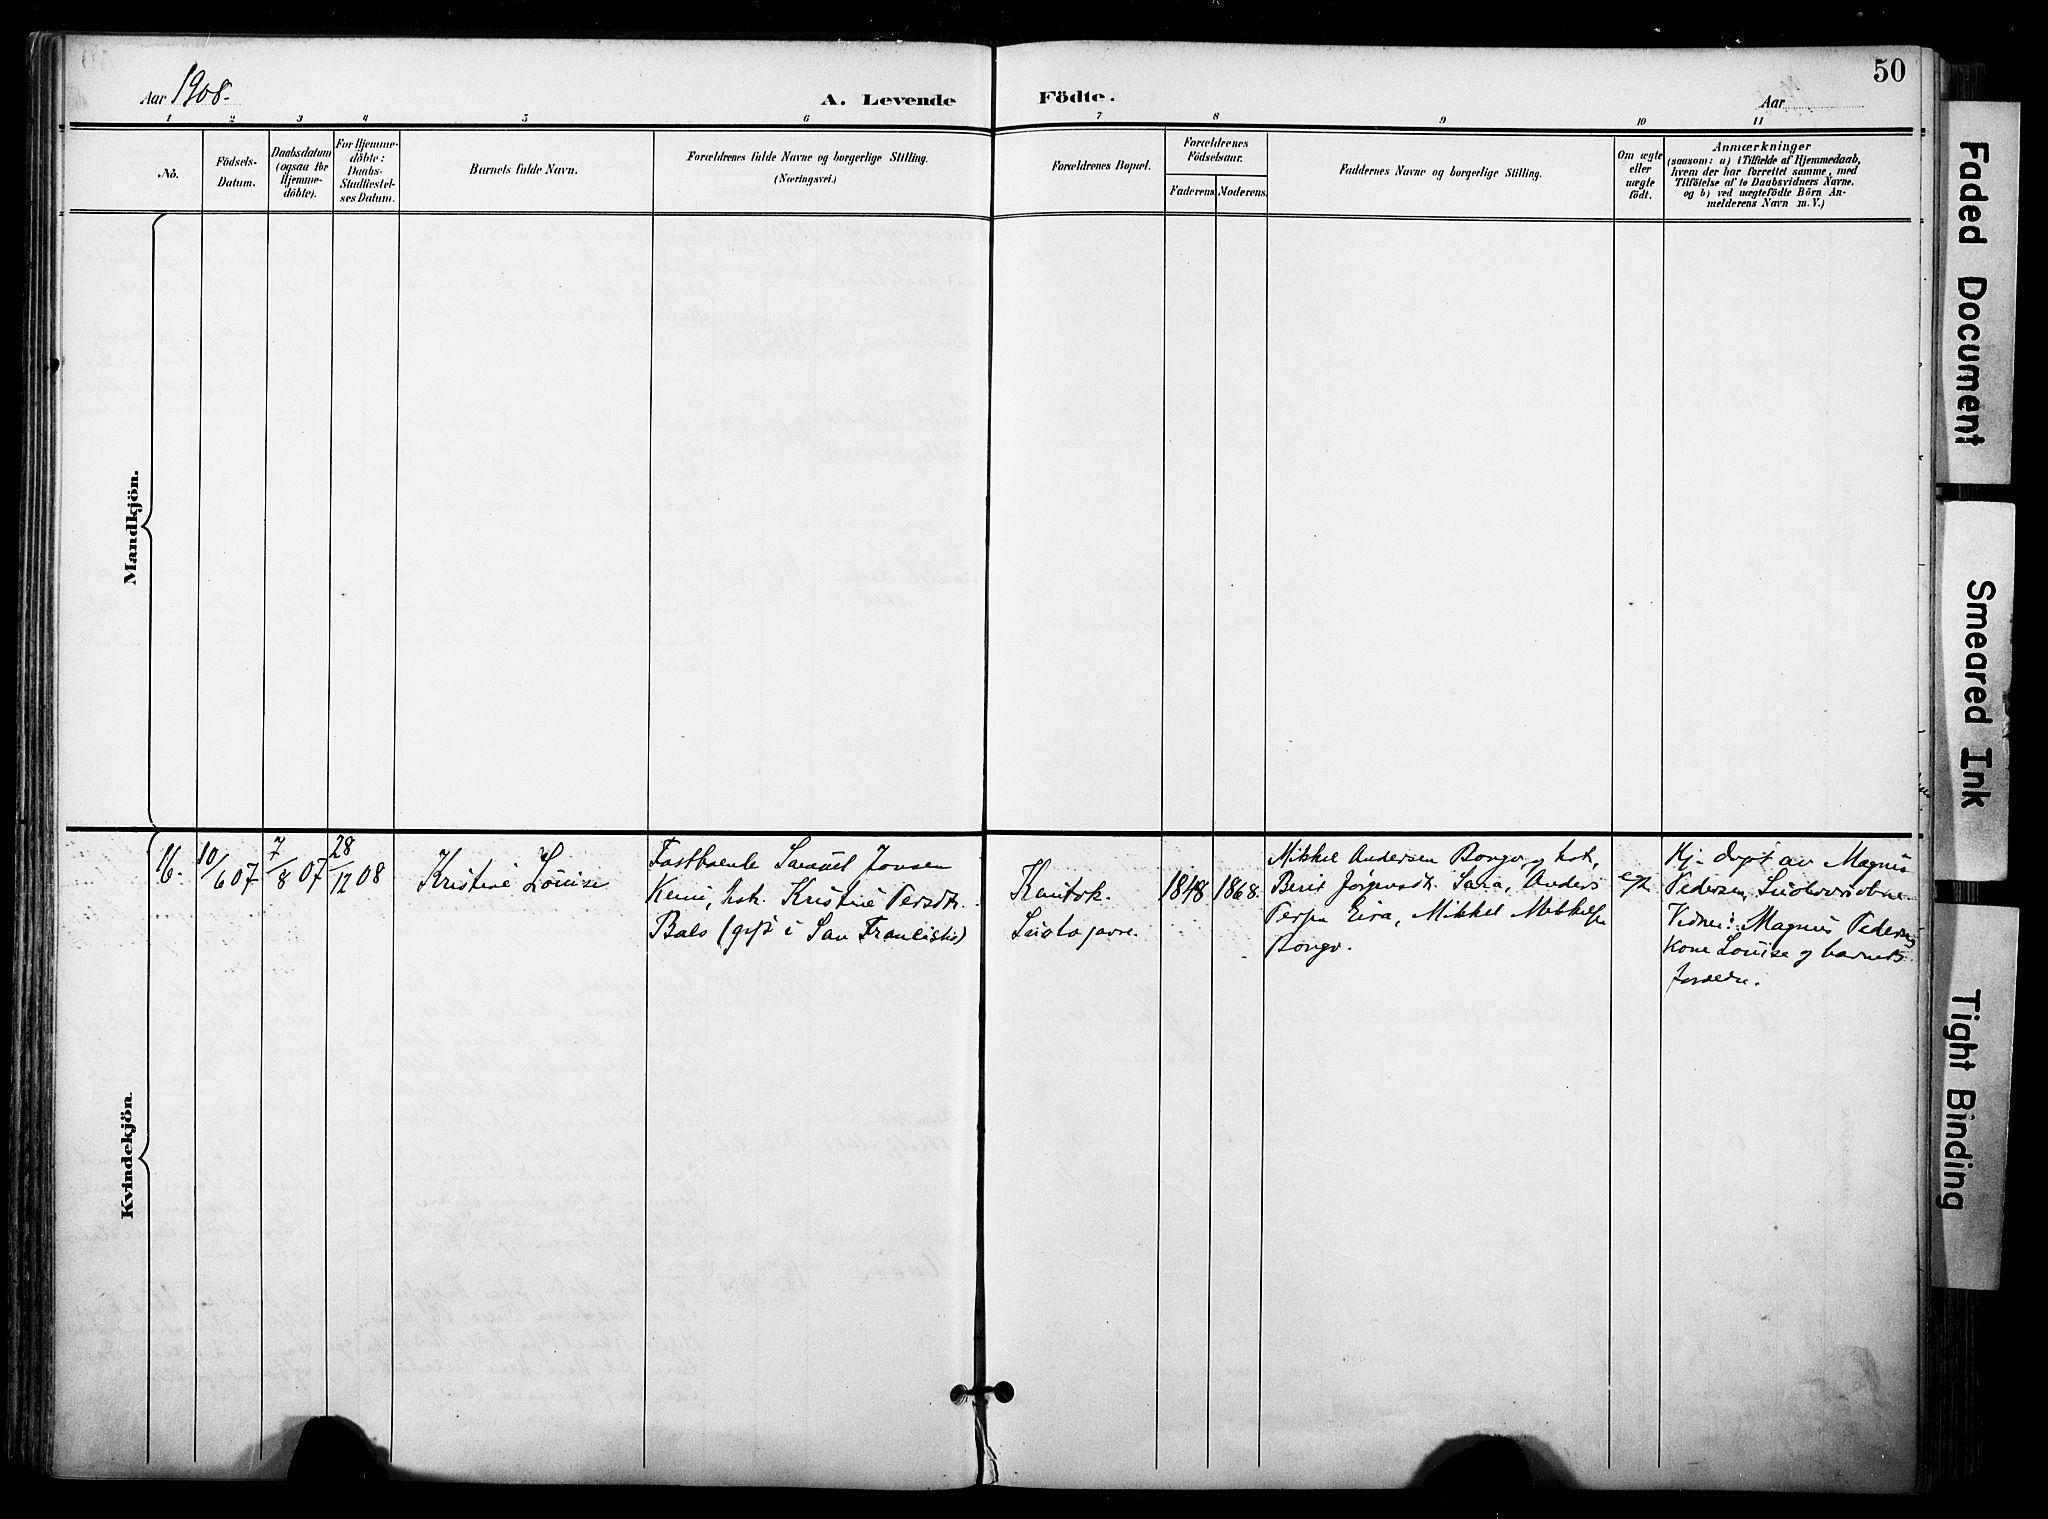 50
Aar 1908.
A. Levende Födte.
Aar
1 2 3 4 5 6 7 8 9 10 11
No.
Födsels-
Datum.
Daabsdatum
(ogsaa for
Hjemme-
döbte).
For Hjemme-
döbte:
Daabs-
Stadfæstel-
ses Datum.
Barnets fulde Navn.
Forældrenes fulde Navne og borgerlige Stilling.
(Næringsvei.)
Forældrenes Bopæl.
Forældrenes
Födselsaar.
Faderens. Moderens.
Faddernes Navne og borgerlige Stilling.
Om ægte
eller
uægte
födt.
Anmærkninger
(saasom: a) i Tilfælde af Hjemmedaab,
hvem der har forrettet samme, med
Tilföielse af to Daabsvidners Navne.
og b) ved uægtefödte Börn An-
melderens Navn m. V.)
Mandkjön.
Kvindekjön.
16.
10/6 07
7/8 07
28/12 08
Kristine Louise
Fastboende Samuel Jonsen
Kemi, hst. Kristine Persdtr.
Bals (gift i San Francisko)
Kautok.
Suolojavre.
1848
1868.
Mikkel Andersen Bongo og hst,
Berit Jörgensdtr. Sara, Anders
Persen Eira, Mikkel Mikkelsen
Bongo.
egte
Hj. døpt av Magnus
Pedersen,
Vidner: Magnus Pedersens
kone Louise og barnets
forældre.
Faded Document
Smeared Ink
Tight Binding